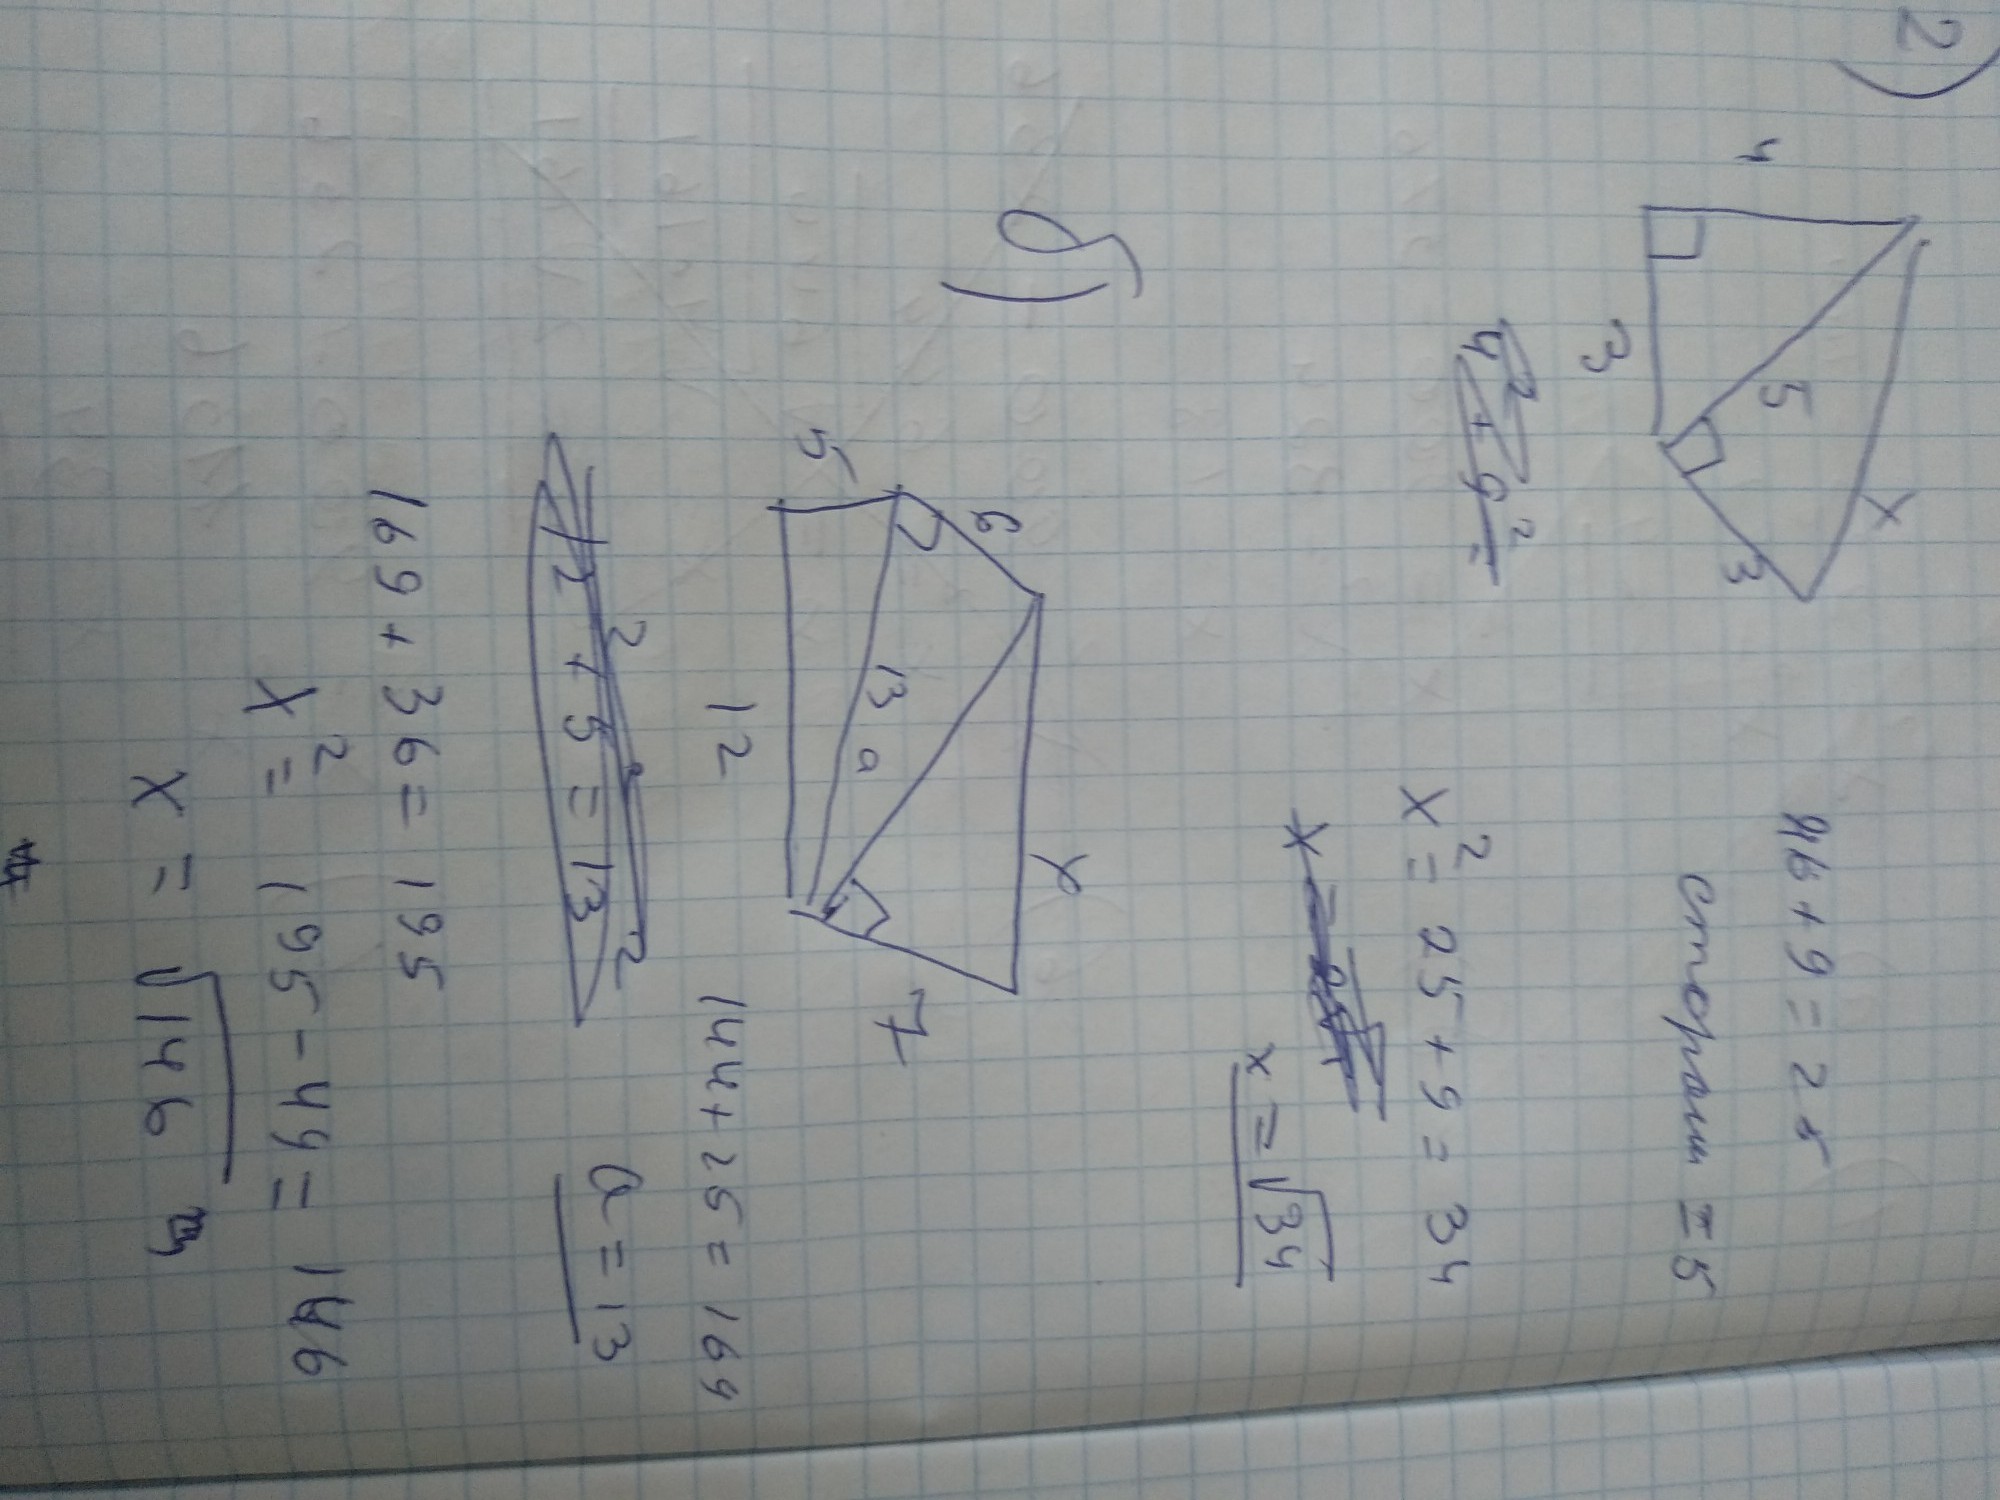 2)
4
5
x
3
3
4² + 9² =
16 + 9 = 25
сторона = 5
x² = 25 + 9 = 34
x = √34
б)
6
x
5
13
a
7
12
144 + 25 = 169
12² + 5² = 13²
a = 13
169 + 36 = 195
x² = 195 - 49 = 146
x = √146